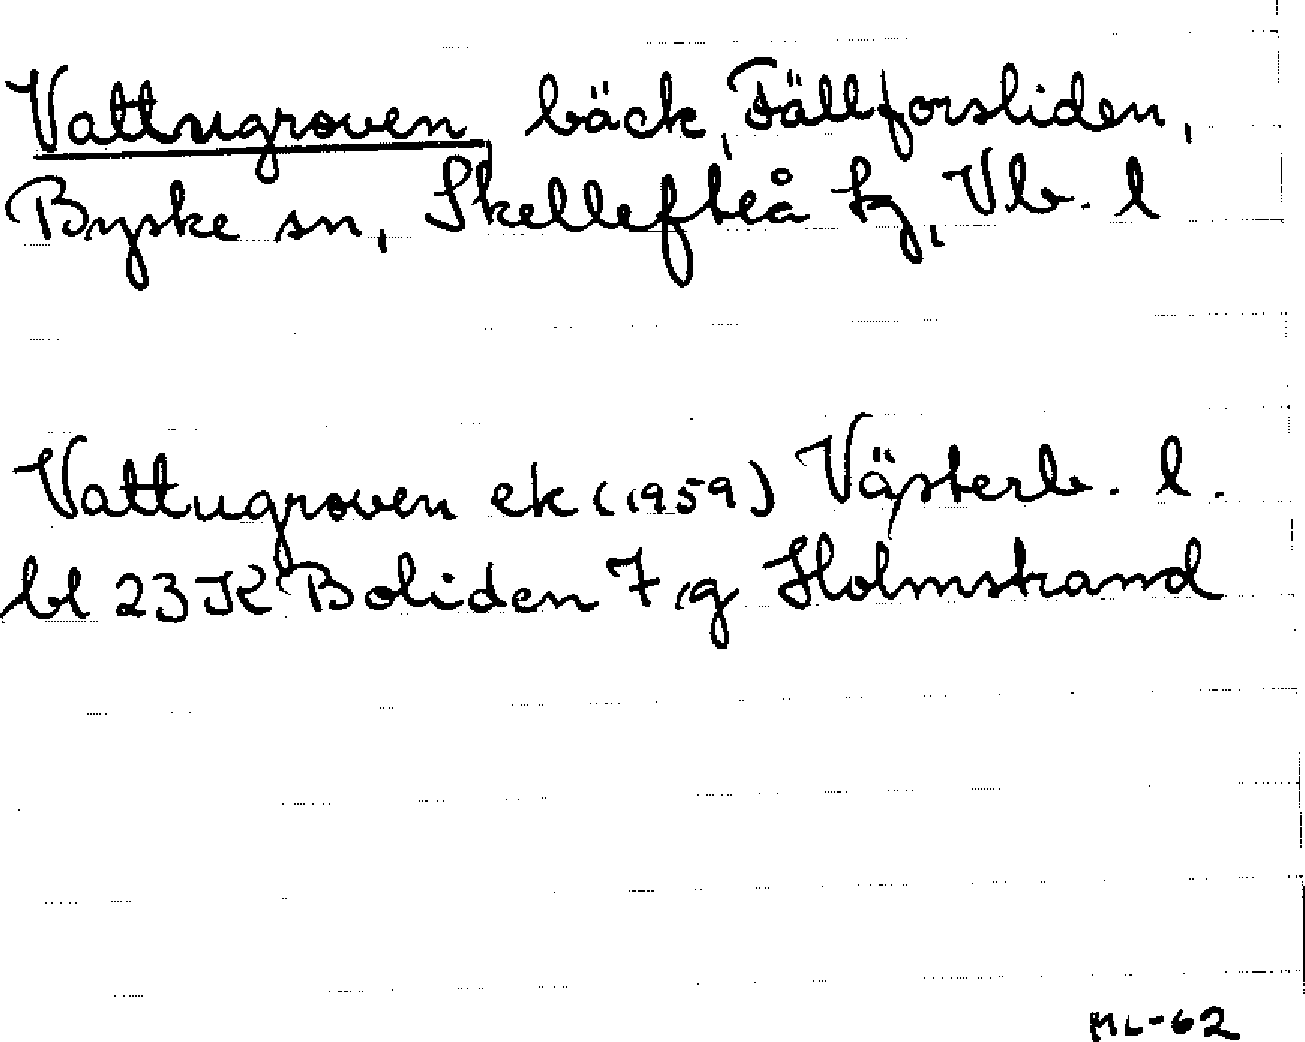 Vattugroven, bäck, Fällforsliden,
Byske sn, Skellefteå tg, Vb. l
Vattugroven ek (1959) Västerb. l.
bl 23 K Boliden 7 g Holmstrand
ML-62